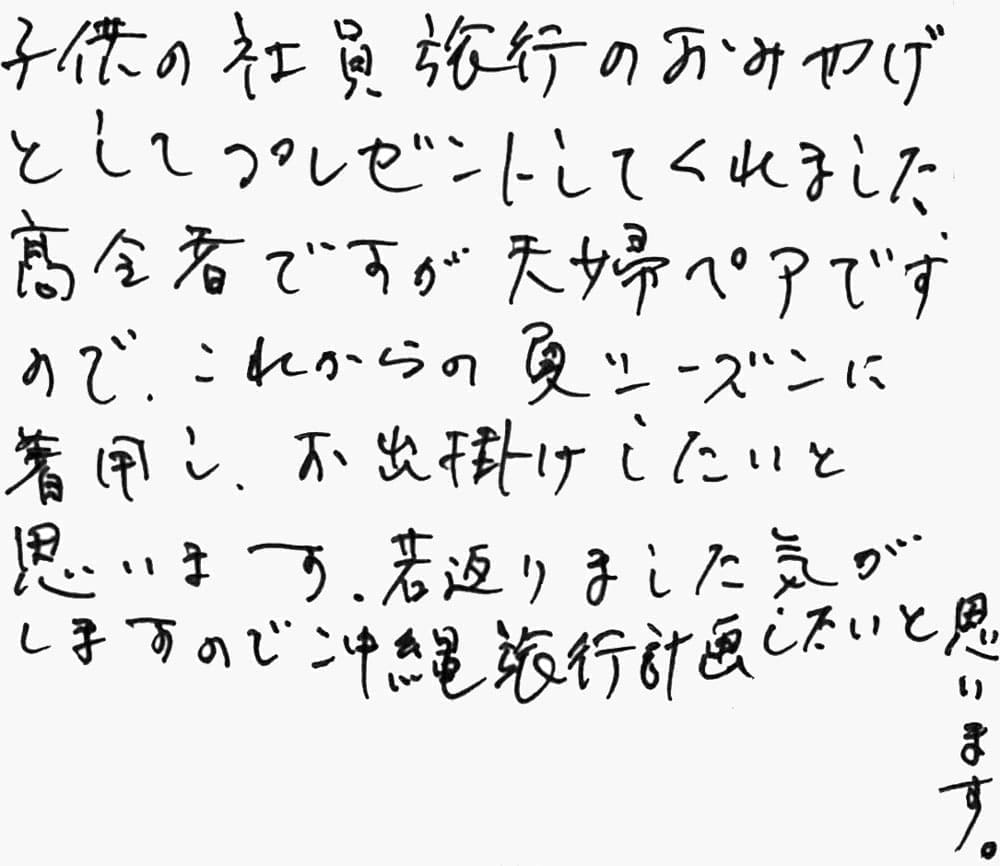 子供の社員旅行のおみやげ
としてプレゼントしてくれました
高令者ですが夫婦ペアです
ので、これからの夏シーズンに
着用し、お出掛けしたいと
思います、若返りました気が
しますので沖縄旅行計画したいと思います。